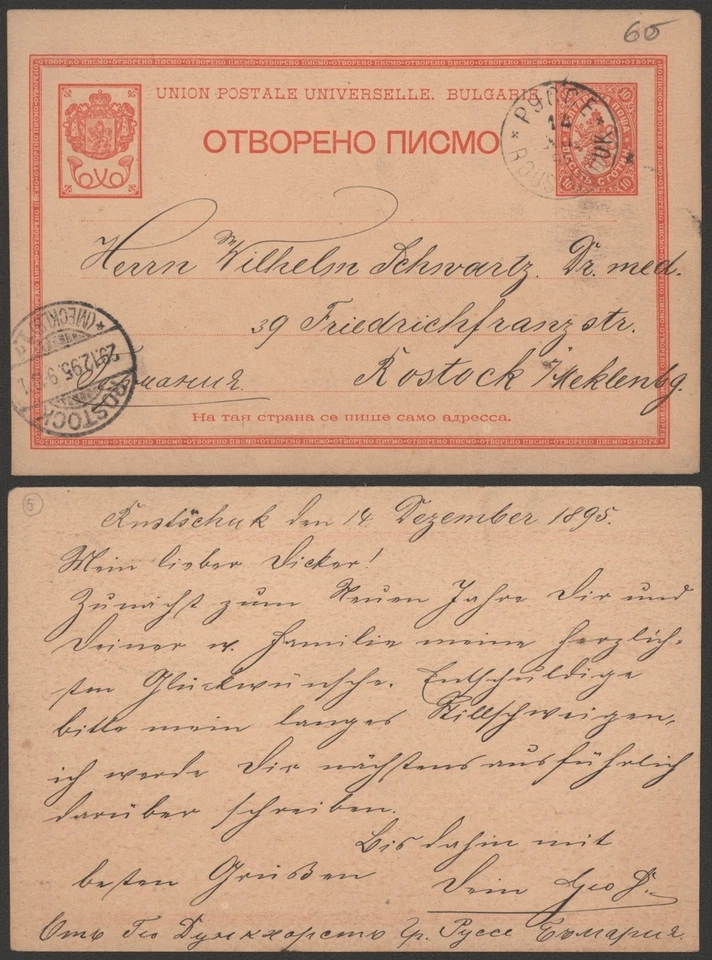 65
UNION POSTALE UNIVERSELLE. BULGARIE
ОТВОРЕНО ПИСМО
РУССЕ
Herrn Wilhelm Schwartz. Dr. med.
39 Friedrichfranzstr.
Германия. Rostock i/Meklenbg.
ROSTOCK
29.12.95.9
(MECKL)
На тая страна се пише само адресса.
5
Rustschuk den 14. Dezember 1895.
Mein lieber Dicker!
Zunächst zum Neuen Jahre Dir und
Deiner w. Familie meine herzlich-
sten Glückwünsche. Entschuldige
bitte mein langes Stillschweigen,
ich werde Dir nächstens ausführlich
darüber schreiben.
Bis dahin mit
besten Grüßen Dein Geo D.
Отъ Гео Дункхорстъ Гр. Руссе Болгария.